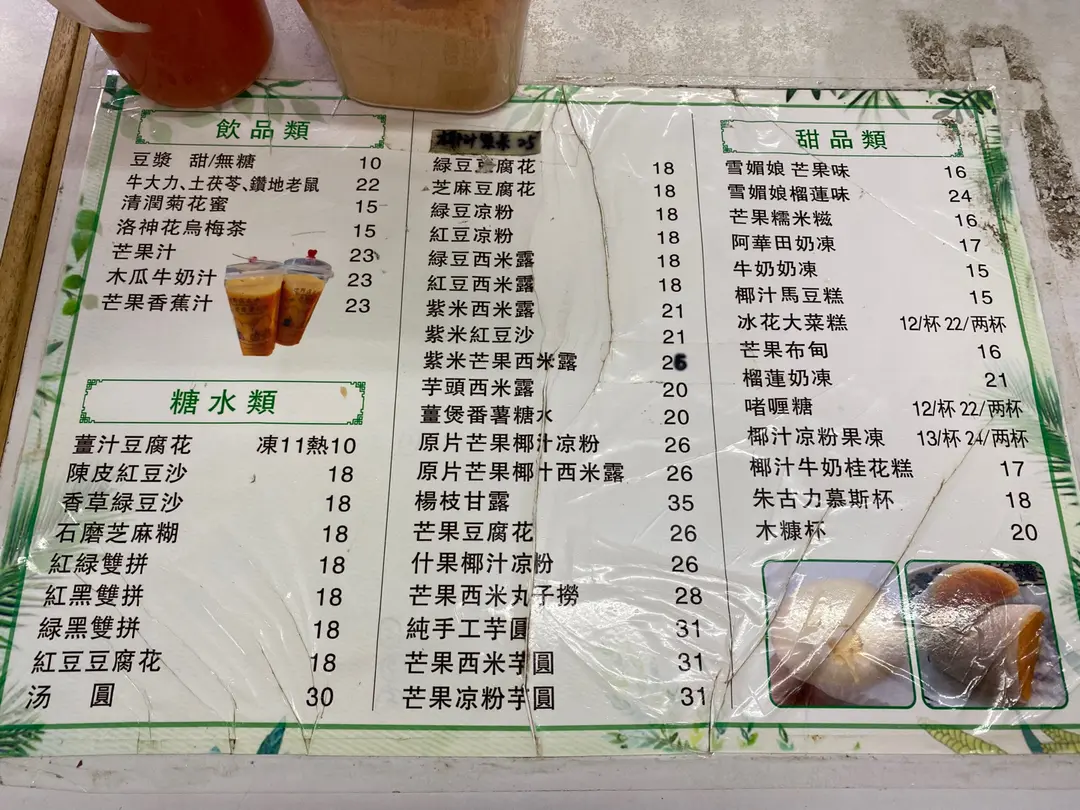 飲品類
豆漿 甜/無糖 10
牛大力、土茯苓、鑽地老鼠 22
清潤菊花蜜 15
洛神花烏梅茶 15
芒果汁 23
木瓜牛奶汁 23
芒果香蕉汁 23
糖水類
薑汁豆腐花 凍11熱10
陳皮紅豆沙 18
香草緑豆沙 18
石磨芝麻糊 18
紅緑雙拼 18
紅黑雙拼 18
緑黑雙拼 18
紅豆豆腐花 18
汤圓 30
緑豆豆腐花 18
芝麻豆腐花 18
緑豆凉粉 18
紅豆凉粉 18
緑豆西米露 18
紅豆西米露 18
紫米西米露 21
紫米紅豆沙 21
紫米芒果西米露 26
芋頭西米露 20
薑煲番薯糖水 20
原片芒果椰汁凉粉 26
原片芒果椰汁西米露 26
楊枝甘露 35
芒果豆腐花 26
什果椰汁凉粉 26
芒果西米丸子撈 28
純手工芋圓 31
芒果西米芋圓 31
芒果凉粉芋圓 31
甜品類
雪媚娘 芒果味 16
雪媚娘榴蓮味 24
芒果糯米糍 16
阿華田奶凍 17
牛奶奶凍 15
椰汁馬豆糕 15
冰花大菜糕 12/杯 22/两杯
芒果布甸 16
榴蓮奶凍 21
啫喱糖 12/杯 22/两杯
椰汁凉粉果凍 13/杯 24/两杯
椰汁牛奶桂花糕 17
朱古力慕斯杯 18
木糠杯 20